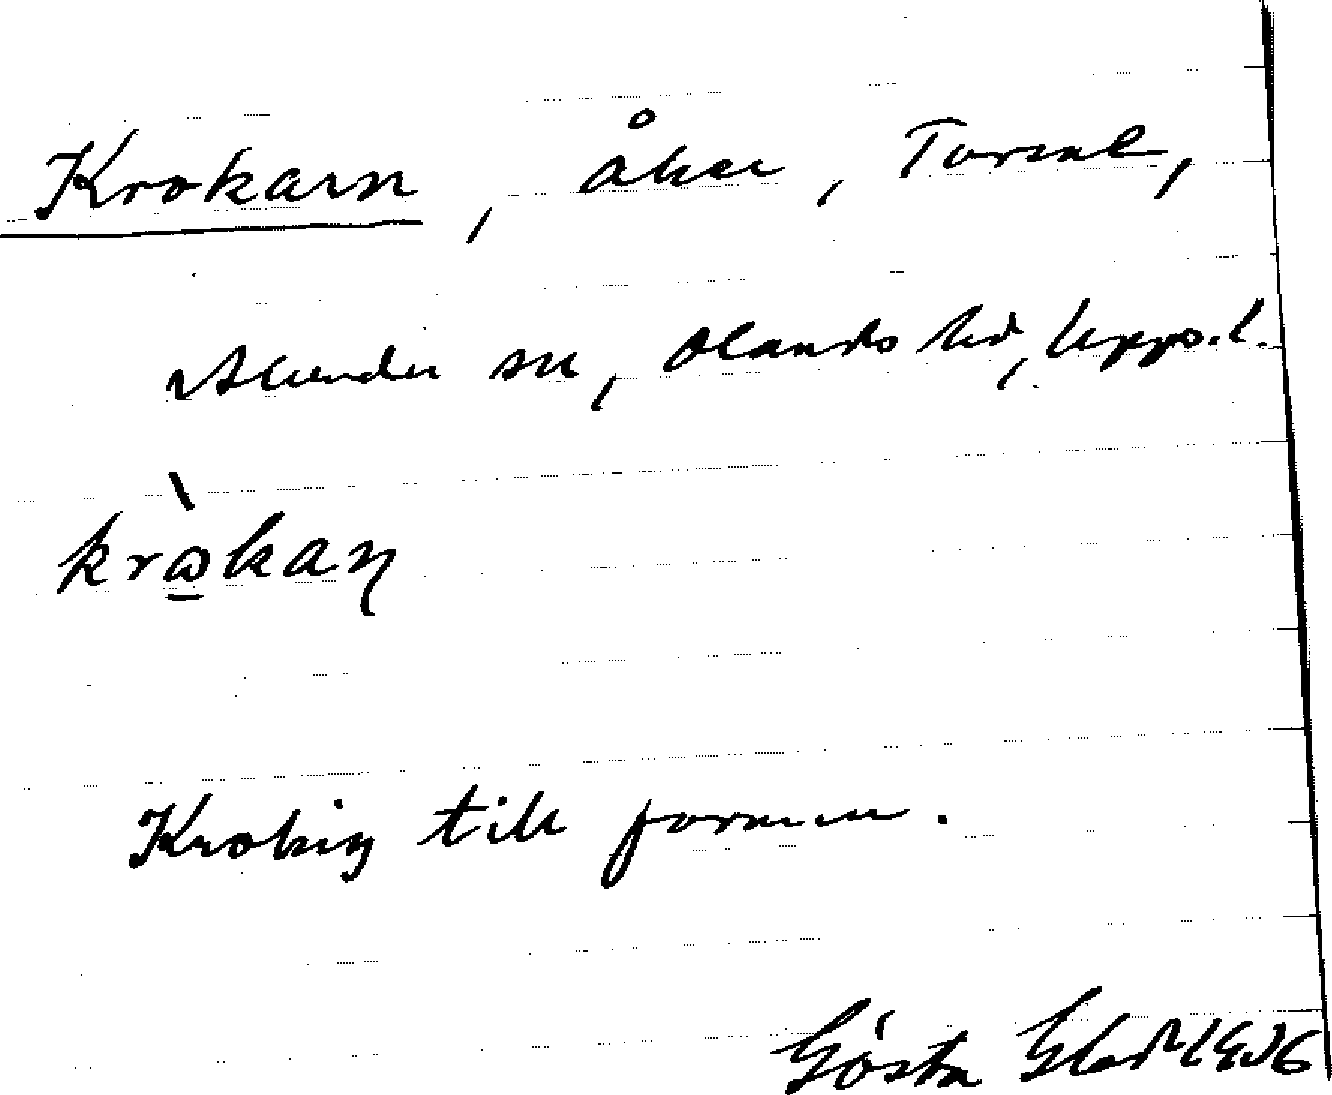 Krokarn, åker, Torsal,
Alunda sn, Olands hd, Upps. l.
krὼ̲kaɳ
Krokig till formen.
Gösta